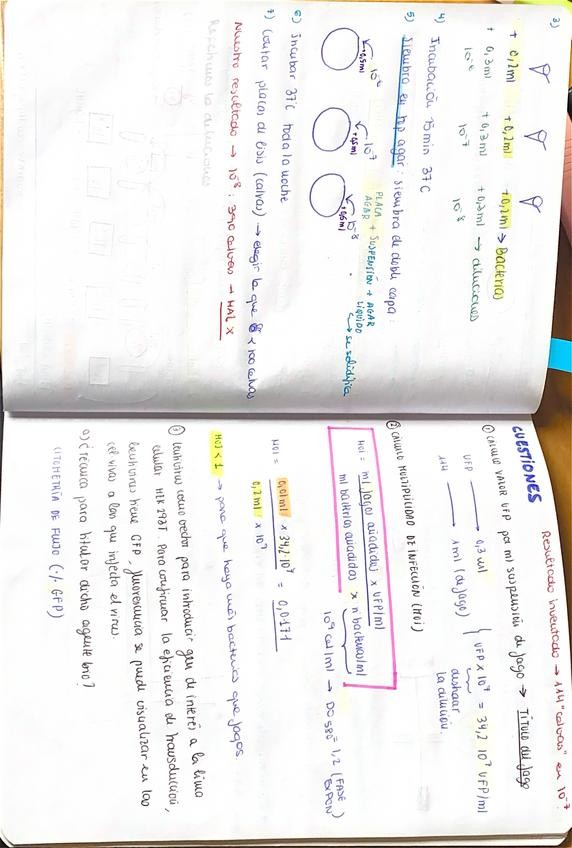 3)
+ 0,2ml + 0,2ml + 0,2ml → Bacterias
+ 0,3ml + 0,3ml + 0,3ml → diluciones
10⁻⁶ 10⁻⁷ 10⁻⁸
4) Incubación 15min 37°C
5) Siembra en top agar: siembra de doble capa:
10⁻⁶ 10⁻⁷ 10⁻⁸
+0,5ml
PLACA AGAR + SUSPENSIÓN + AGAR LÍQUIDO
↳ se solidifica
6) Incubar 37°C toda la noche
7) Contar placas de lisis (calvas) → elegir la que < 100 calvas
Nuestro resultado → 10⁻⁸: 390 calvas → MAL X
Resultado inventado → 114 "calvas" en 10⁻⁷
CUESTIONES
① CALCULO VALOR UFP por ml suspensión de fago → Título del fago
UFP → 0,3 ml
114 → 1ml (de fago)
UFP x 10⁷ = 34,2 · 10⁷ UFP/ml
deshacer la dilución.
② CALCULO MULTIPLICIDAD DE INFECCIÓN (MOI)
MOI = ml fago añadidos x UFP/ml
ml bacteria añadidos x nº bacterias/ml
10⁹ cel/ml → DO 580 = 1,2 (FASE EXPON)
MOI = 0,01ml x 34,2 · 10⁷ = 0,0171
0,2ml x 10⁹
MOI < 1 → para que haya más bacterias que fagos
③ Lentivirus como vector para introducir gen de interés a la línea
celular HEK 293T. Para confirmar la eficiencia de transducción,
lentivirus tiene GFP, fluorescencia se puede visualizar en las
cel vivas a las que infecta el virus.
a) ¿Técnica para titular dicho agente bio?
CITOMETRÍA DE FLUJO (·/. GFP)